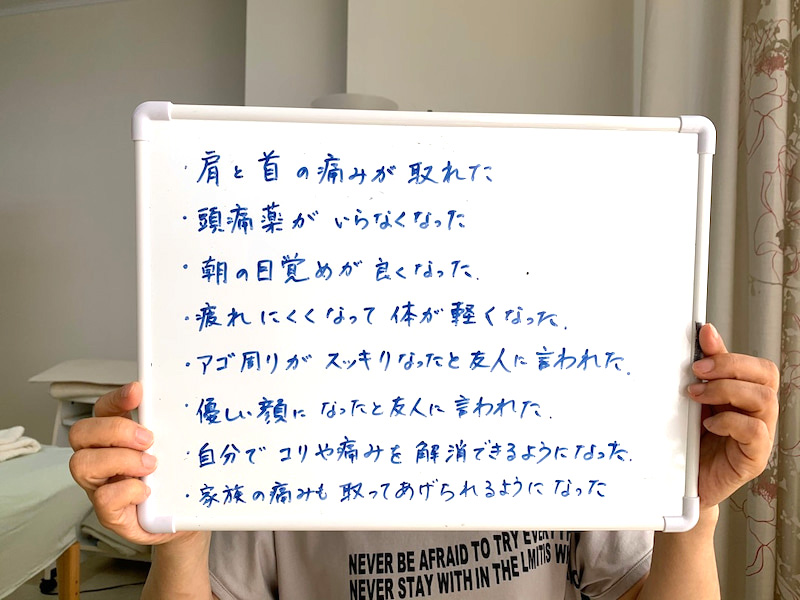 ・肩と首の痛みが取れた
・頭痛薬がいらなくなった
・朝の目覚めが良くなった.
・疲れにくくなって体が軽くなった.
・アゴ周りがスッキリなったと友人に言われた.
・優しい顔になったと友人に言われた.
・自分でコリや痛みを解消できるようになった.
・家族の痛みも取ってあげられるようになった
NEVER BE AFRAID TO TRY
NEVER STAY WITH IN THE LMITIS